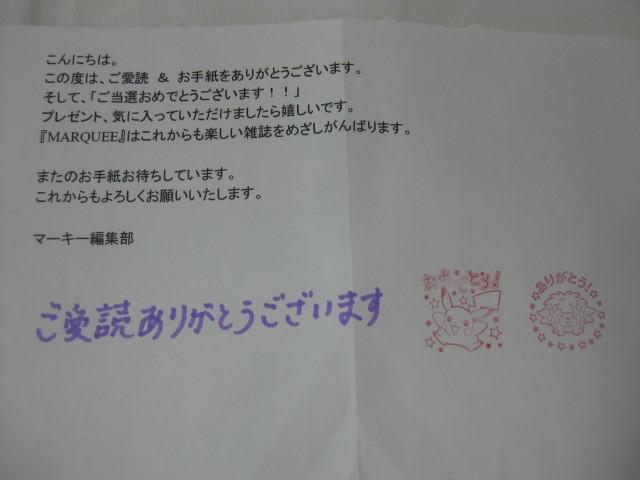 こんにちは。
この度は、ご愛読 & お手紙をありがとうございます。
そして、「ご当選おめでとうございます！！」
プレゼント、気に入っていただけましたら嬉しいです。
『MARQUEE』はこれからも楽しい雑誌をめざしがんばります。
またのお手紙お待ちしています。
これからもよろしくお願いいたします。
マーキー編集部
ご愛読ありがとうございます
おめでとう！
ありがとう！